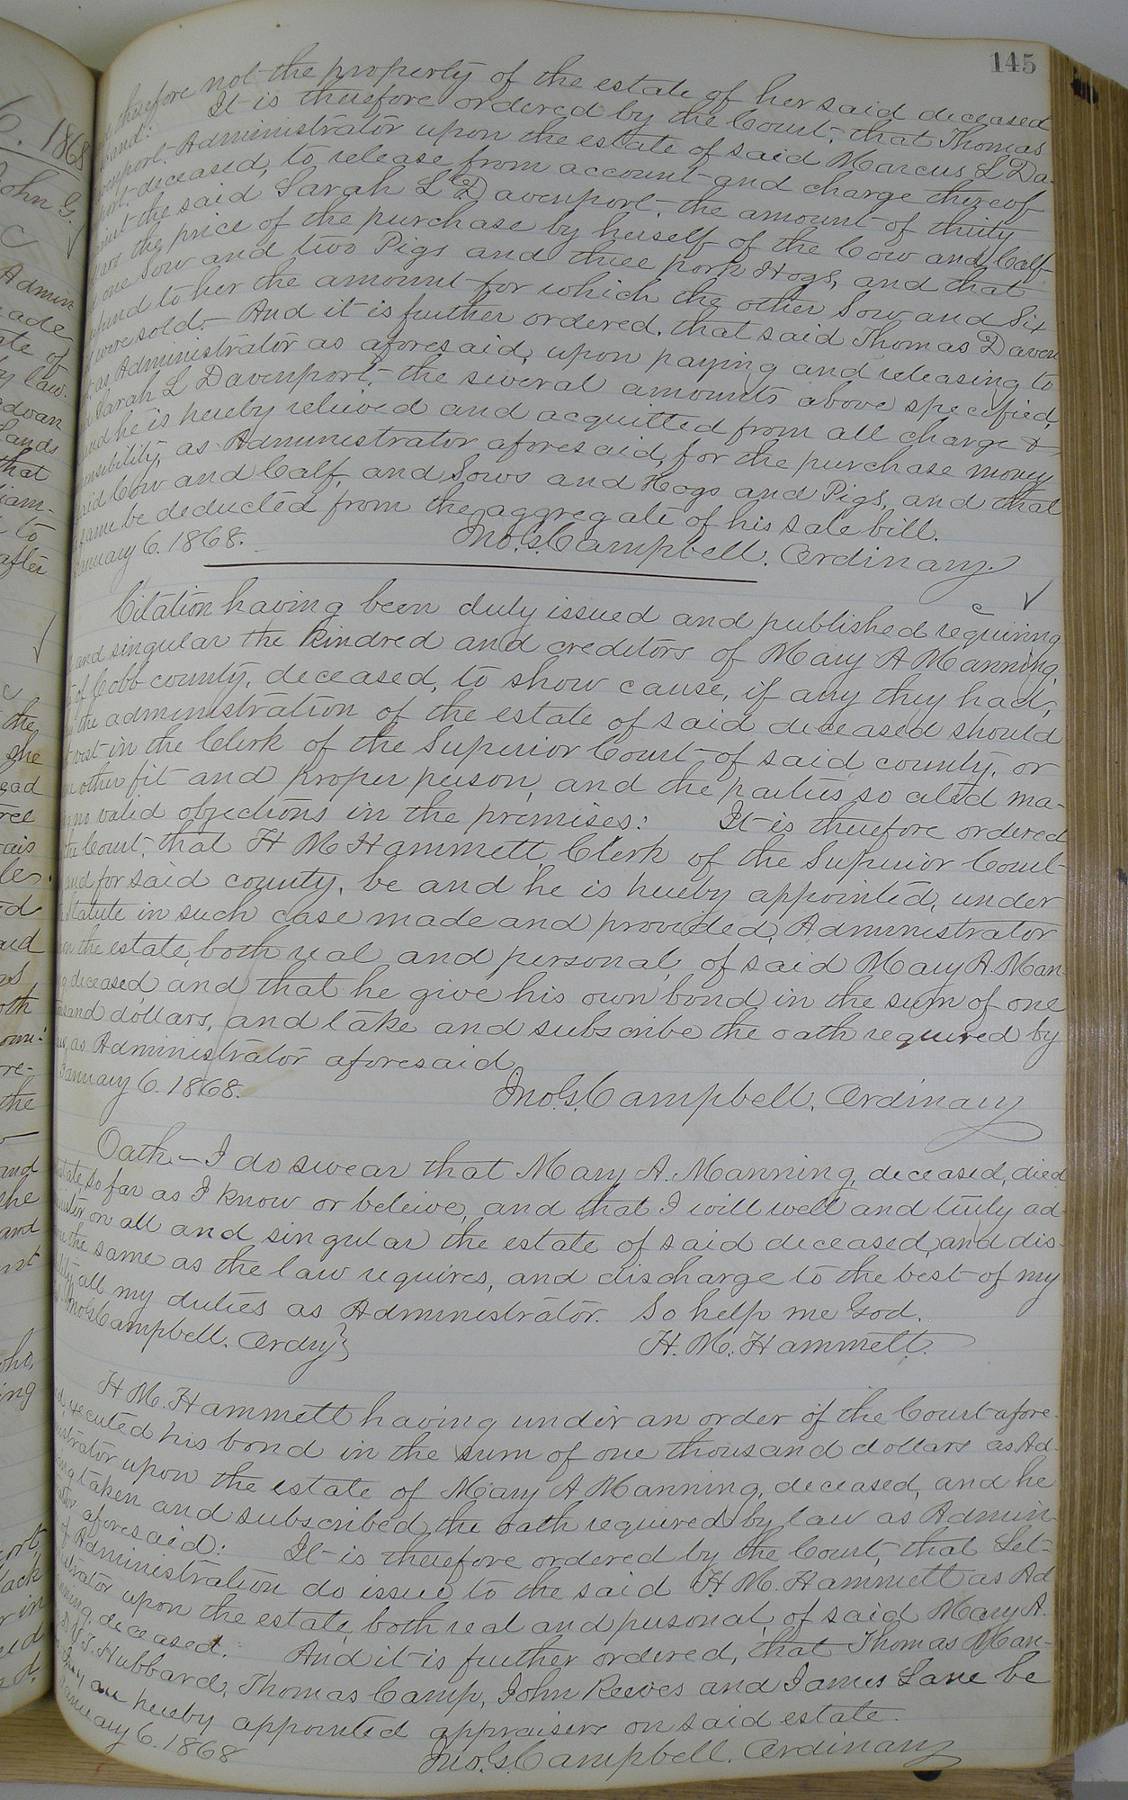 145
therefore not the property of the estate of her said deceased
band: It is therefore ordered by the Court, that Thomas
enport Administrator upon the estate of said Marcus L Da-
port deceased, to release from account and charge thereof
inst the said Sarah L Davenport, the amount of thirty
the price of the purchase by herself of the Cow and Calf
one Sow and two Pigs and three pork Hogs, and that
efund to her the amount for which the other Sow and Six
were sold.— And it is further ordered, that said Thomas Daven
as Administrator as aforesaid, upon paying and releasing to
Sarah L Davenport, the several amounts above specified,
and he is hereby relieved and acquitted from all charge &
onsibility, as Administrator aforesaid, for the purchase money
said Cow and Calf, and Sows and Hogs and Pigs, and that
same be deducted from the aggregate of his sale bill.
January 6. 1868. Jno. G. Campbell. Ordinary.
Citation having been duly issued and published requiring
and singular the kindred and creditors of Mary A Manning,
of Cobb county, deceased, to show cause, if any they had,
the administration of the estate of said deceased should
vest in the Clerk of the Superior Court of said county, or
other fit and proper person, and the parties so cited ma-
no valid objections in the premises: It is therefore ordered
the Court, that H M Hammett, Clerk of the Superior Court
and for said county, be and he is hereby appointed, under
Statute in such case made and provided, Administrator
upon the estate, both real and personal, of said Mary A. Man
deceased, and that he give his own bond in the sum of one
usand dollars, and take and subscribe the oath required by
as Administrator aforesaid
January 6. 1868. Jno. G. Campbell, Ordinary
Oath.— I do swear that Mary A. Manning, deceased, died
estate, so far as I know or beleive, and that I will well and truly ad-
minister on all and singular the estate of said deceased, and dis-
the same as the law requires, and discharge to the best of my
all my duties as Administrator. So help me God.
Jno. G. Campbell. Ordry} H. M. Hammett.
H M. Hammett having under an order of the Court afore-
executed his bond in the sum of one thousand dollars as Ad-
nistrator upon the estate of Mary A Manning, deceased, and he
ing taken and subscribed the oath required by law as Admin
aforesaid: It is therefore ordered by the Court, that Let-
of Administration do issue to the said H. M. Hammett as Ad
nistrator upon the estate, both real and personal, of said Mary A.
nning, deceased. And it is further ordered, that Thomas Man-
Hubbard, Thomas Camp, John Reeves and James Lane be
they are hereby appointed appraisers on said estate.
January 6. 1868 Jno. G. Campbell. Ordinary